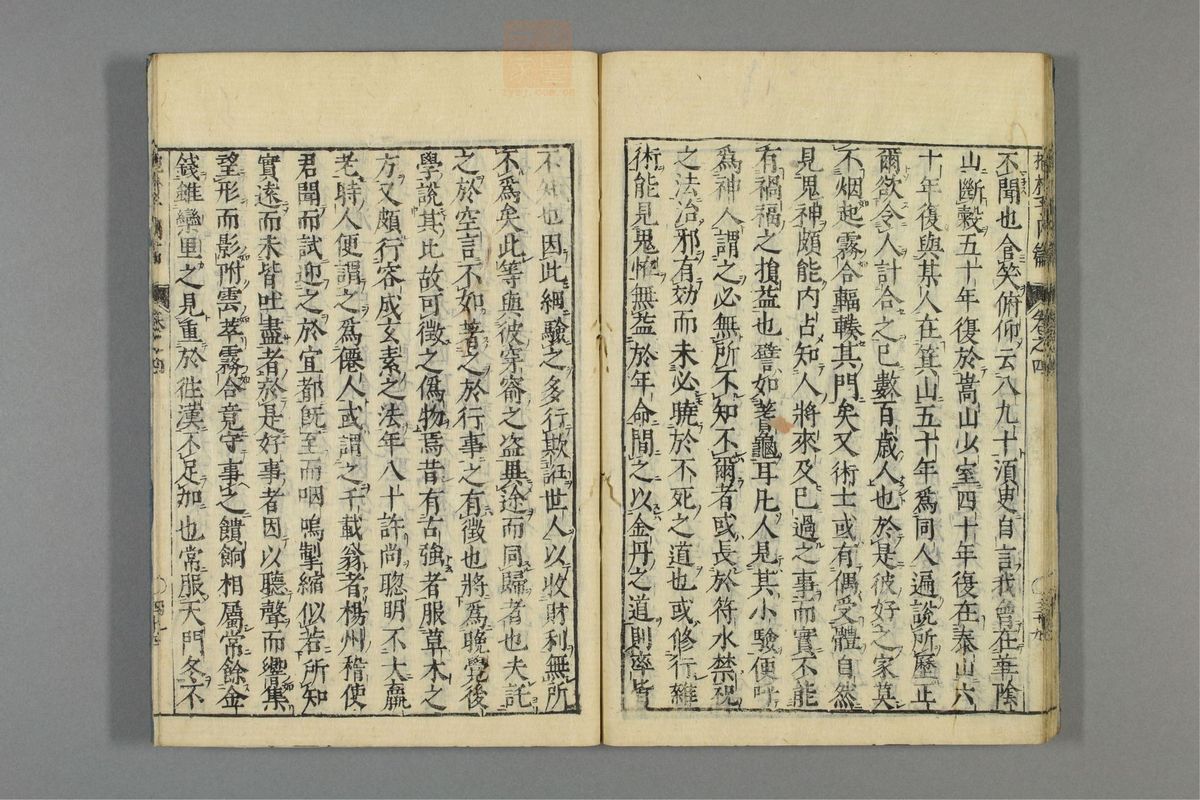 抱朴子内篇 卷之四
不聞也含笑俯仰云八九十須臾自言我曾在華陰
山斷穀五十年復於嵩山少室四十年復在泰山六
十年復與某人在箕山五十年爲同人遍說所歷正
爾欲令人計合之已數百歲人也於是彼好之家莫
不烟起霧合輻輳其門矣又術士或有偶受體自然
見鬼神頗能内占知人將來及已過之事而實不能
有禍福之損益也譬如蓍龜耳凡人見其小驗便呼
爲神人謂之必無所不知不爾者或長於符水禁祝
之法治邪有効而未必曉於不死之道也或修行雜
術能見鬼怪無益於年命問之以金丹之道則率皆
不知也因此細驗之多行欺誑世人以收財利無所
不爲矣此等與彼穿窬之盗異途而同歸者也夫託
之於空言不如著之於行事之有徵也將爲晚覺後
學說其比故可徵之僞物焉昔有古強者服草木之
方又頗行容成玄素之法年八十許尚聰明不大羸
老時人便謂之爲僊人或謂之千載翁者楊州稽使
君聞而試迎之於宜都旣至而咽嗚掣縮似若所知
實遠而未皆吐盡者於是好事者因以聽聲而響集
望形而影附雲萃霧合竟守事之饋餉相屬常餘金
錢雖欒里之見重於徃漢不足加也常服天門冬不